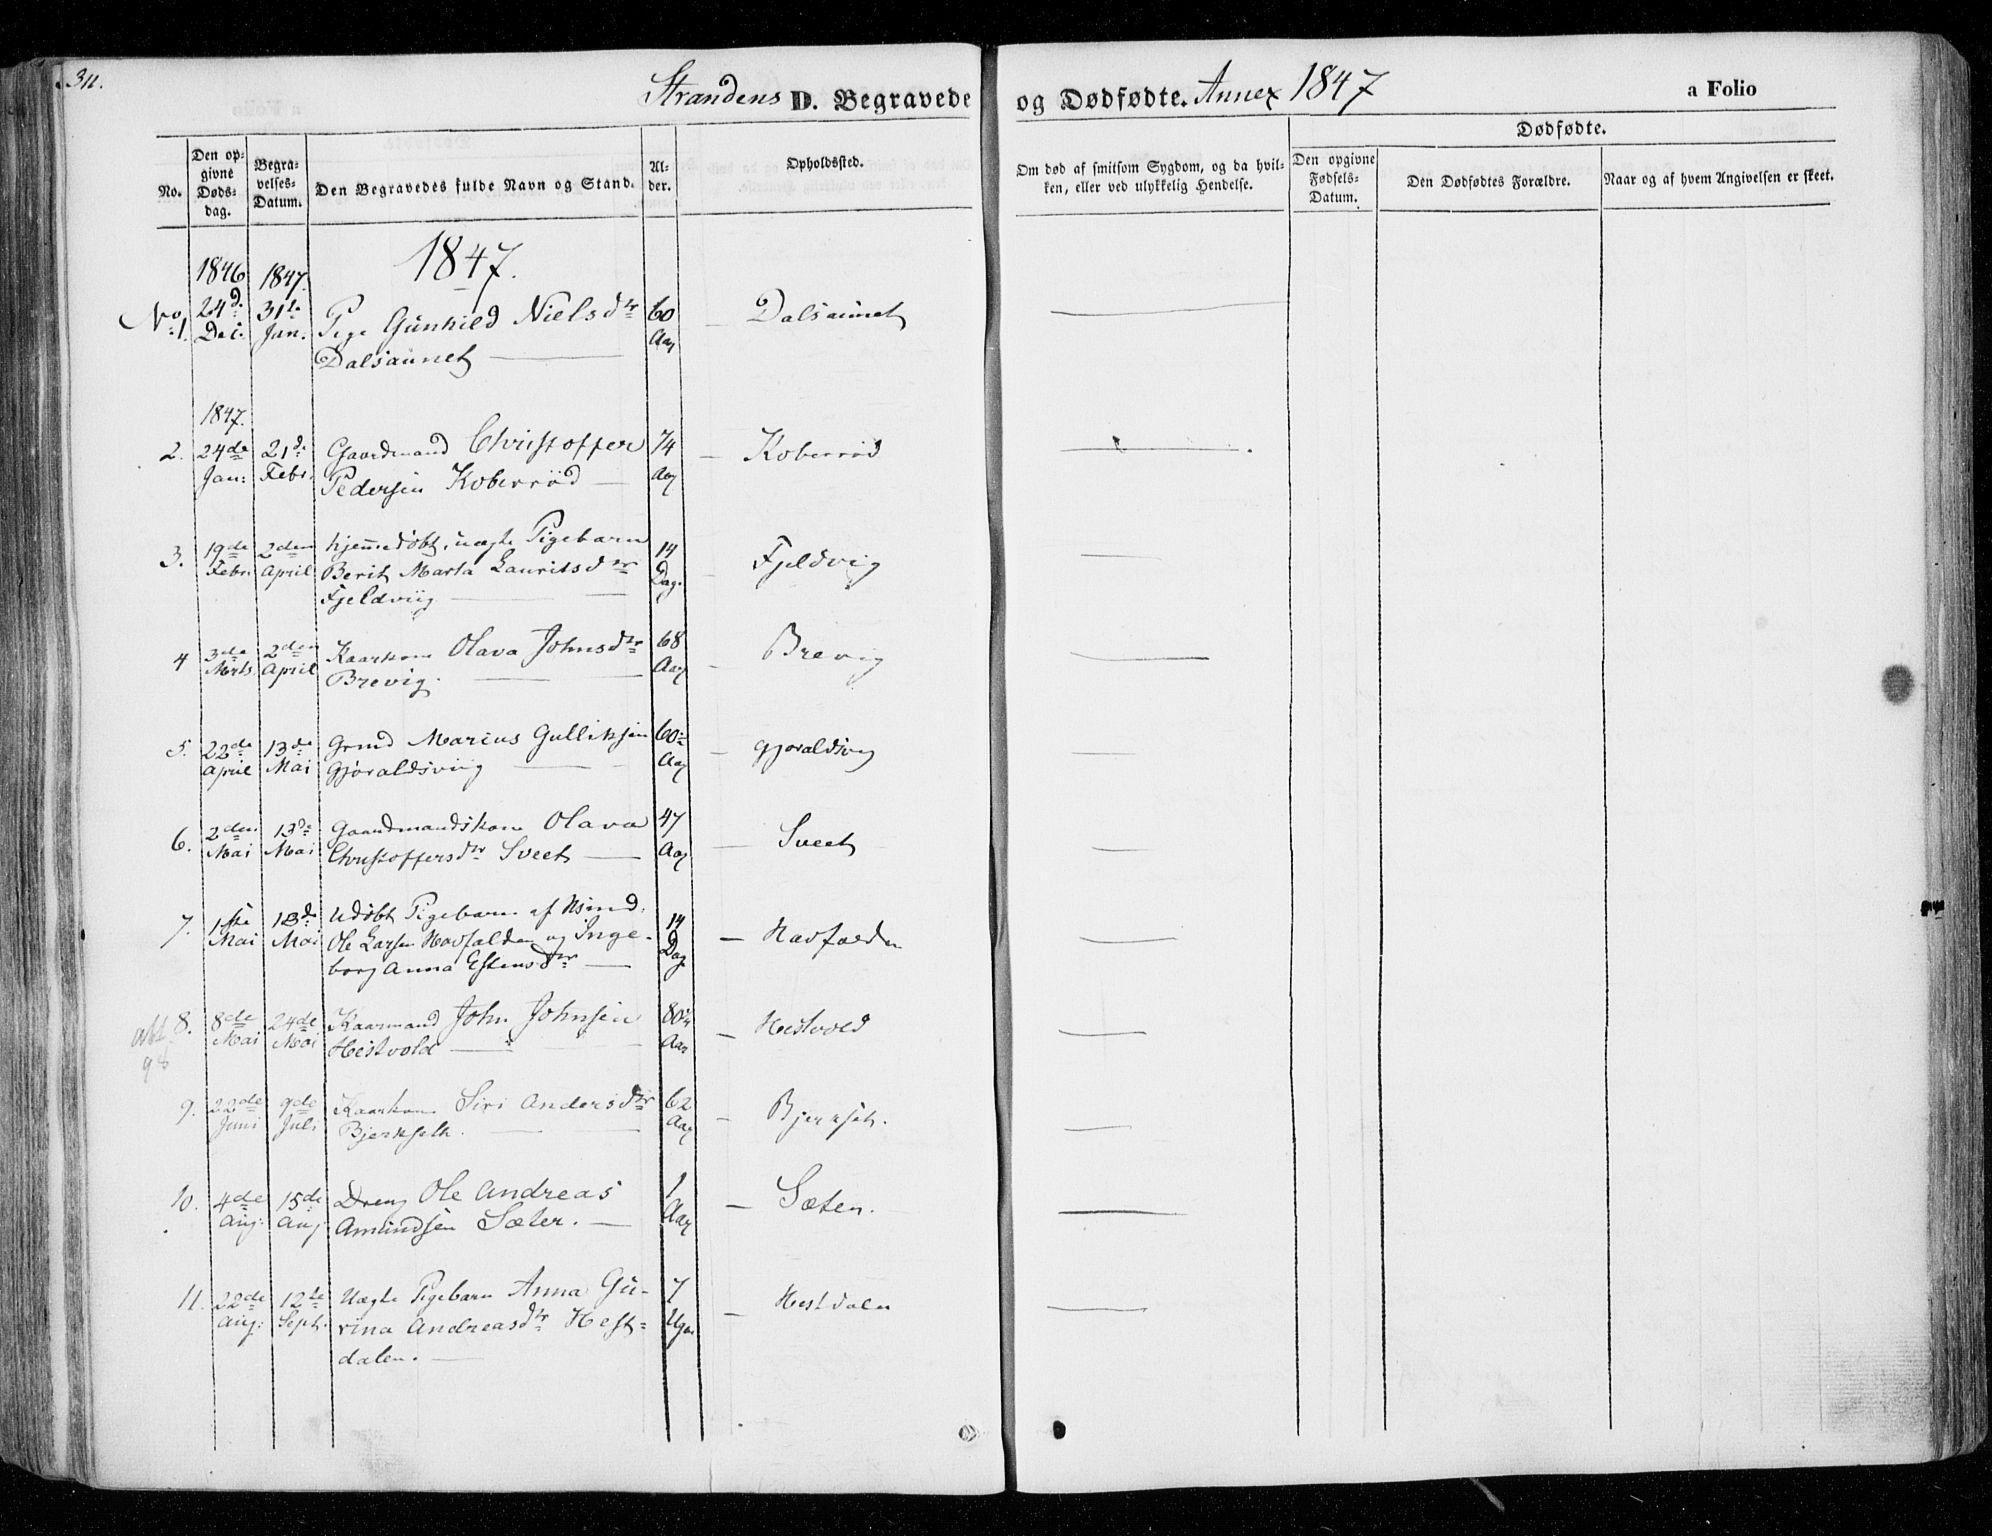 311.
Strandens D. Begravede og Dødfødte. Annex 1847 a Folio
No.
Den opgivne Dødsdag.
Begravelses-Datum.
Den Begravedes fulde Navn og Stand.
Alder.
Opholdssted.
Om død af smitsom Sygdom, og da hvilken, eller ved ulykkelig Hendelse.
Dødfødte.
Den opgivne Fødsels-Datum.
Den Dødfødtes Forældre.
Naar og af hvem Angivelsen er skeet.
1847.
1846 1847.
No 1. 24d. 31te Pige Gunhild Nielsdtr 60 — Dalsaunet
Dec. Jan. Dalsaunet Aar
1847.
2. 24de 21de Gaardmand Christoffer 74 — Koberrød
Jan: Febr. Pedersen Koberrød Aar
3. 19de 2den hjemmedøbt, uægte Pigebarn 14 Fjeldvig
Febr. April Berit Marta Lauritsdtr Dag.
Fjeldviig
4 3de 2den Kaarkone Olava Johnsdtr 68 — Brevig
Marts April Brevig. Aar
5. 22de 13de Grmd Marius Gulliksen 60 — Gjøraldsvig
April Mai Gjøraldsviig Aar
6. 2den 13de Gaardmandskone Olava 47 — Sveet
Mai Mai Christoffersdtr Sveet Aar
7. 1ste 13de Udøbt Pigebarn af Hsmd. 14 — Havfalden
Mai Mai Ole Larsen Havfalden og Inge- Dag
borg Anna Estensdtr
8. 8de 24de Kaarmand John Johnsen 80 — Hestvold
Mai Mai Hestvold Aar
9. 22de 9de Kaarkone Siri Andersdtr 62 — Bjerkset.
Juni Juli Bjerkseth. Aar
10. 4de 15de Dreng Ole Andreas 1 — Sæter.
Aug: Aug. Amundsen Sæter. Aar
11. 22de 12te Uægte Pigebarn Anna Gu- 7 — Hestdalen
Aug: Sept. rina Andreasdtr Hest- Uger
dalen.